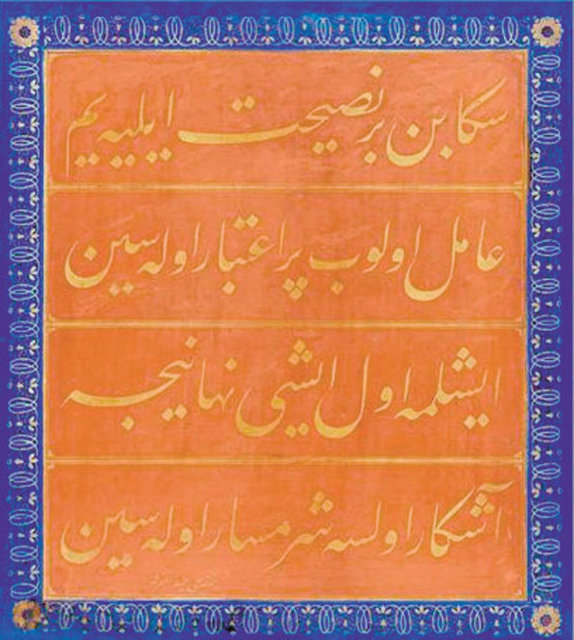 سكا بن بر نصيحت ايليه يم
عامل اولوب پر اعتبار اوله سين
ايشلمه اول ايشى نهانيجه
آشكار اولسه شرمسار اوله سين